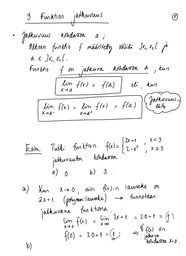 3 Funktion jatkuvuus
①
• Jatkuvuus kohdassa a :
Olkoon funktio f määritelty välillä ]x₁, x₂[ ja
a ∈ ]x₁, x₂[.
Funktio f on jatkuva kohdassa a, kun
lim x→a f(x) = f(a) eli, kun
lim x→a⁻ f(x) = lim x→a⁺ f(x) = f(a)
Jatkuvuus-
Esim. Tutki funktion f(x) = { 2x+1 , x < 3
2-x² , x ≥ 3
jatkuvuutta kohdassa
a) 0 b) 3.
a) Kun x→0, niin f(x):n lauseke on
2x+1 (polynomilauseke) → funktion
jatkuvana funktiona
lim x→0 f(x) = lim x→0 2x+1 = 2·0+1 = 1
f(0) = 2·0+1 = 1 → f(x) on
jatkuva
kohdassa x=0.
b)